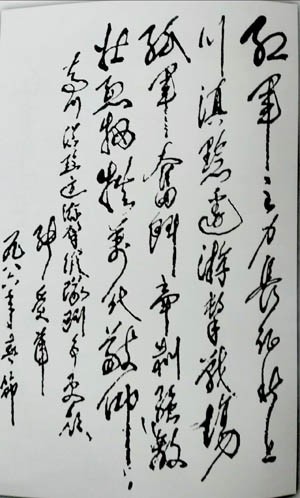 红军主力长征北上
川滇黔边游击战场
孤军奋斗牵制强敌
壮烈牺牲万代敬仰
川滇黔边游击纵队
张爱萍
一九八六年春节